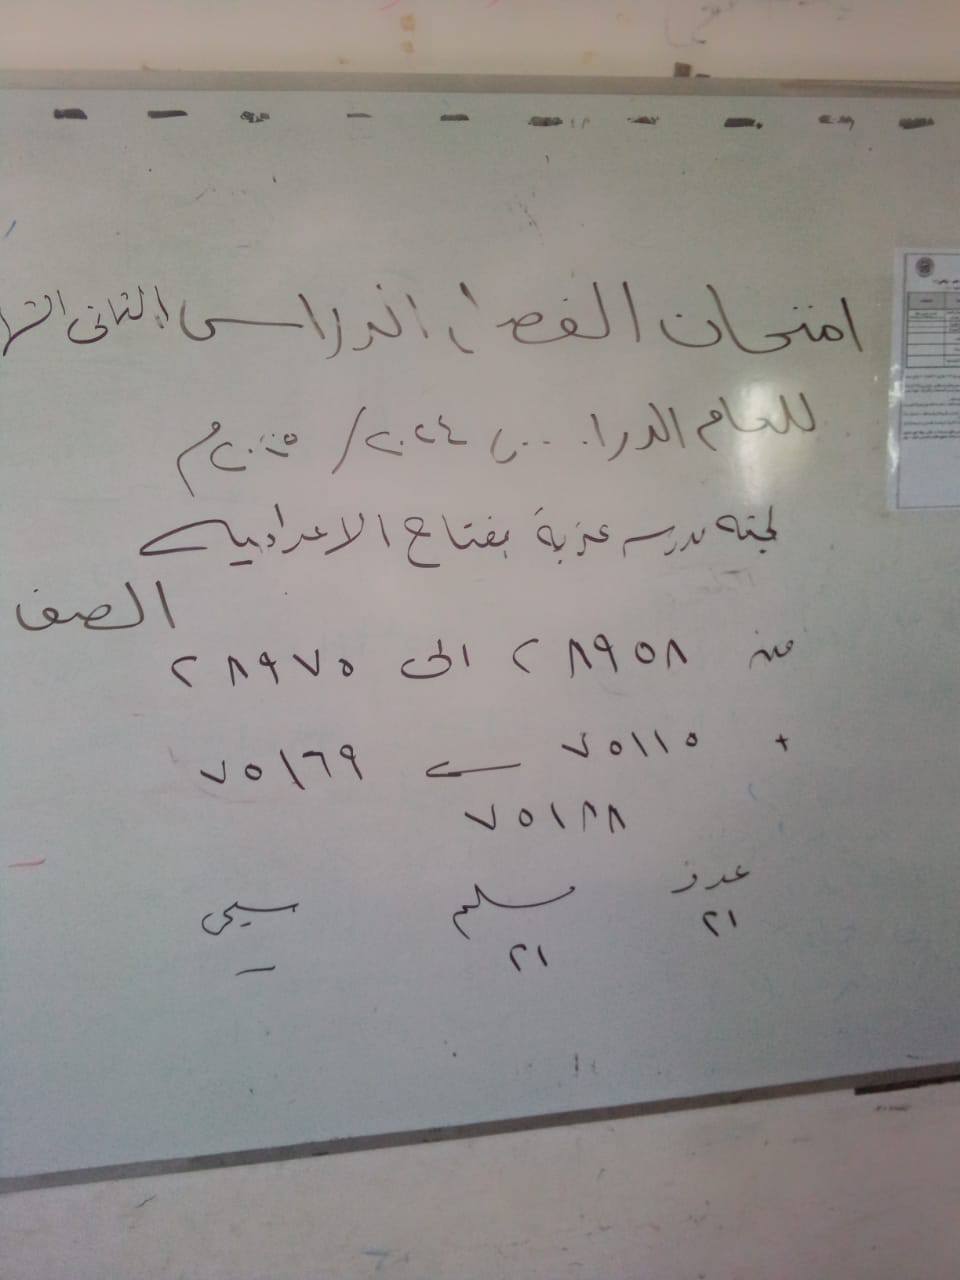 امتحان الفصل الدراسى الثانى
للعام الدرا ٢٠٢٤/ م
لجنة مدرسه عزبة مفتاح الاعدادية
الصف
من ٢٨٩٥٨ الى ٢٨٩٧٠
+ ٧٥١١٥ ← ٧٥١٦٩
٧٥١٨٨
عدد مسلم مسيحى
٢١ ٢١ —